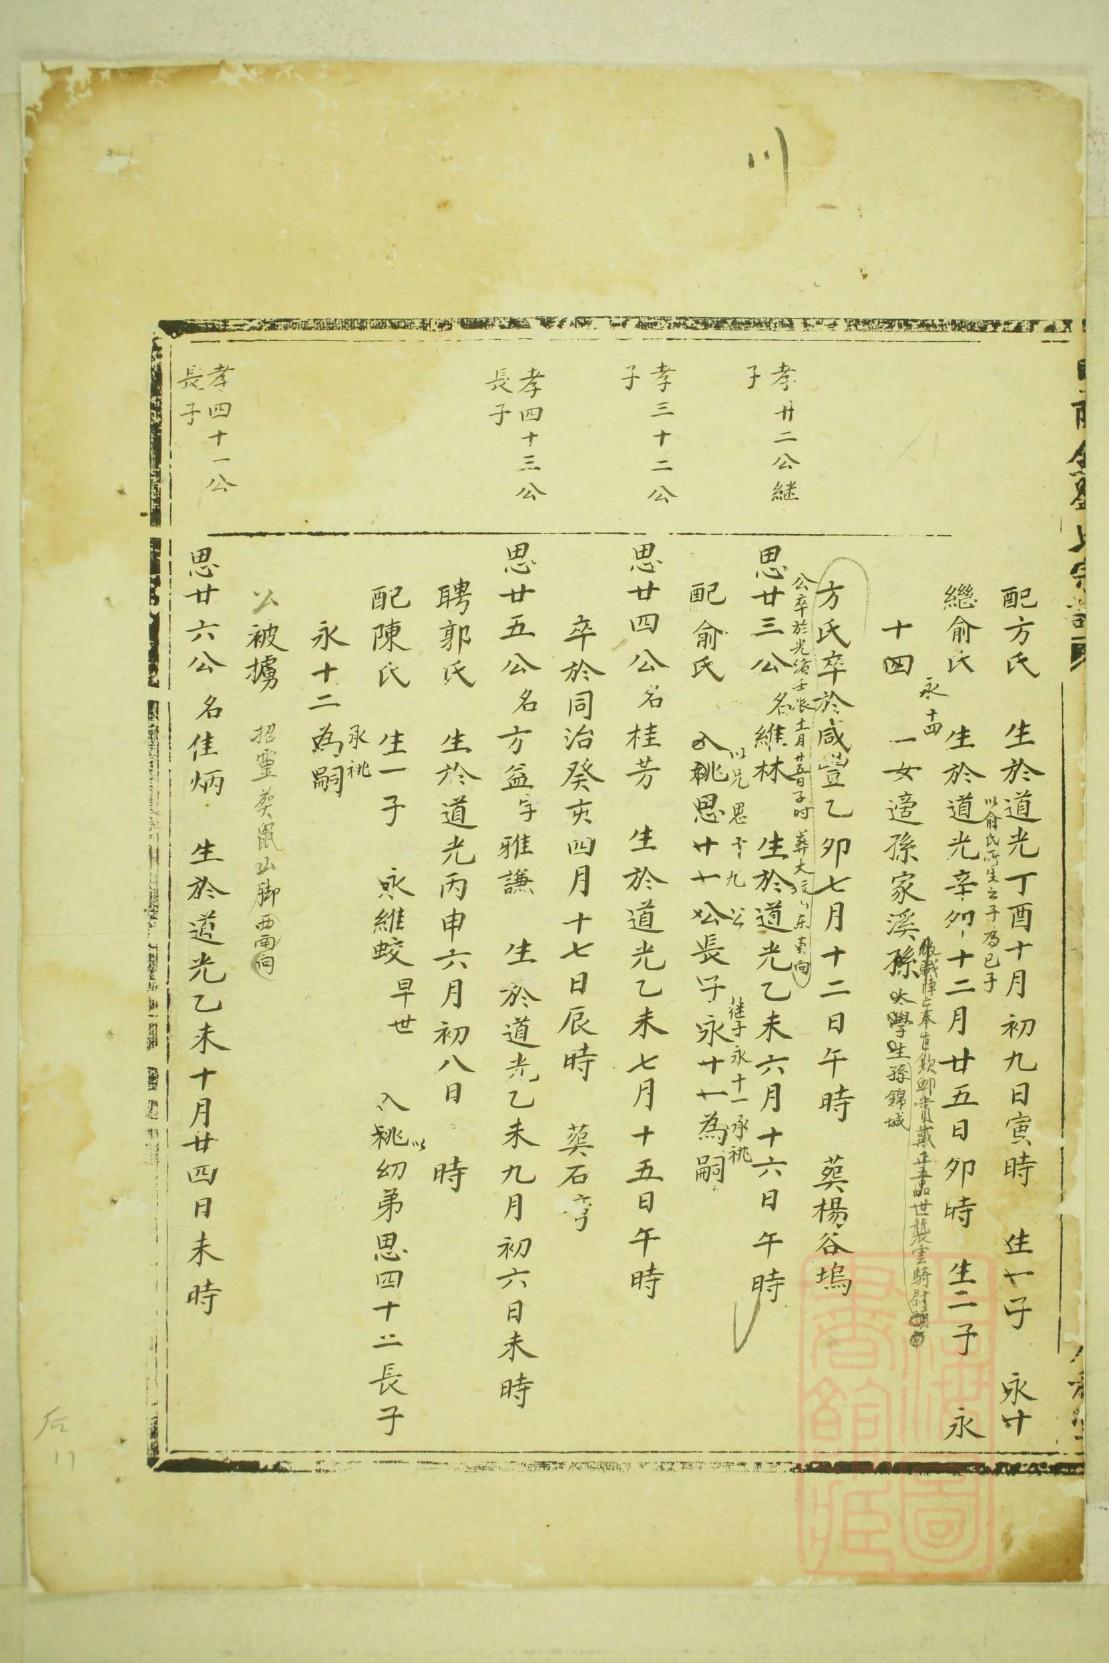 川
配方氏 生於道光丁酉十月初九日寅時 生一子 永廿
以俞氏所生之子為己子
繼俞氏 生於道光辛卯十二月廿五日卯時 生二子 永
永十四
十四 一女適孫家溪孫太學生孫錦城
方氏卒於咸豐乙卯七月十二日午時 葬楊谷塢
公卒於光緒壬辰十二月廿五日子时 葬大
孝廿二公継
子
思廿三公 名維林 生於道光乙未六月十六日午時
以兄思十九公
継子永十一承祧
配俞氏 入祧思廿七公長子永廿一為嗣
孝三十二公
子
思廿四公 名桂芳 生於道光乙未七月十五日午時
卒於同治癸亥四月十七日辰時 葬石
孝四十三公
長子
思廿五公 名方益字雅謙 生於道光乙未九月初六日未時
聘郭氏 生於道光丙申六月初八日 時
配陳氏 生一子 永維蛟早世 入祧以幼弟思四十二長子
永十二為嗣
承祧
公被擄 招靈葬鼠山脚西南向
孝四十一公
長子
思廿六公 名佳炳 生於道光乙未十月廿四日未時
后